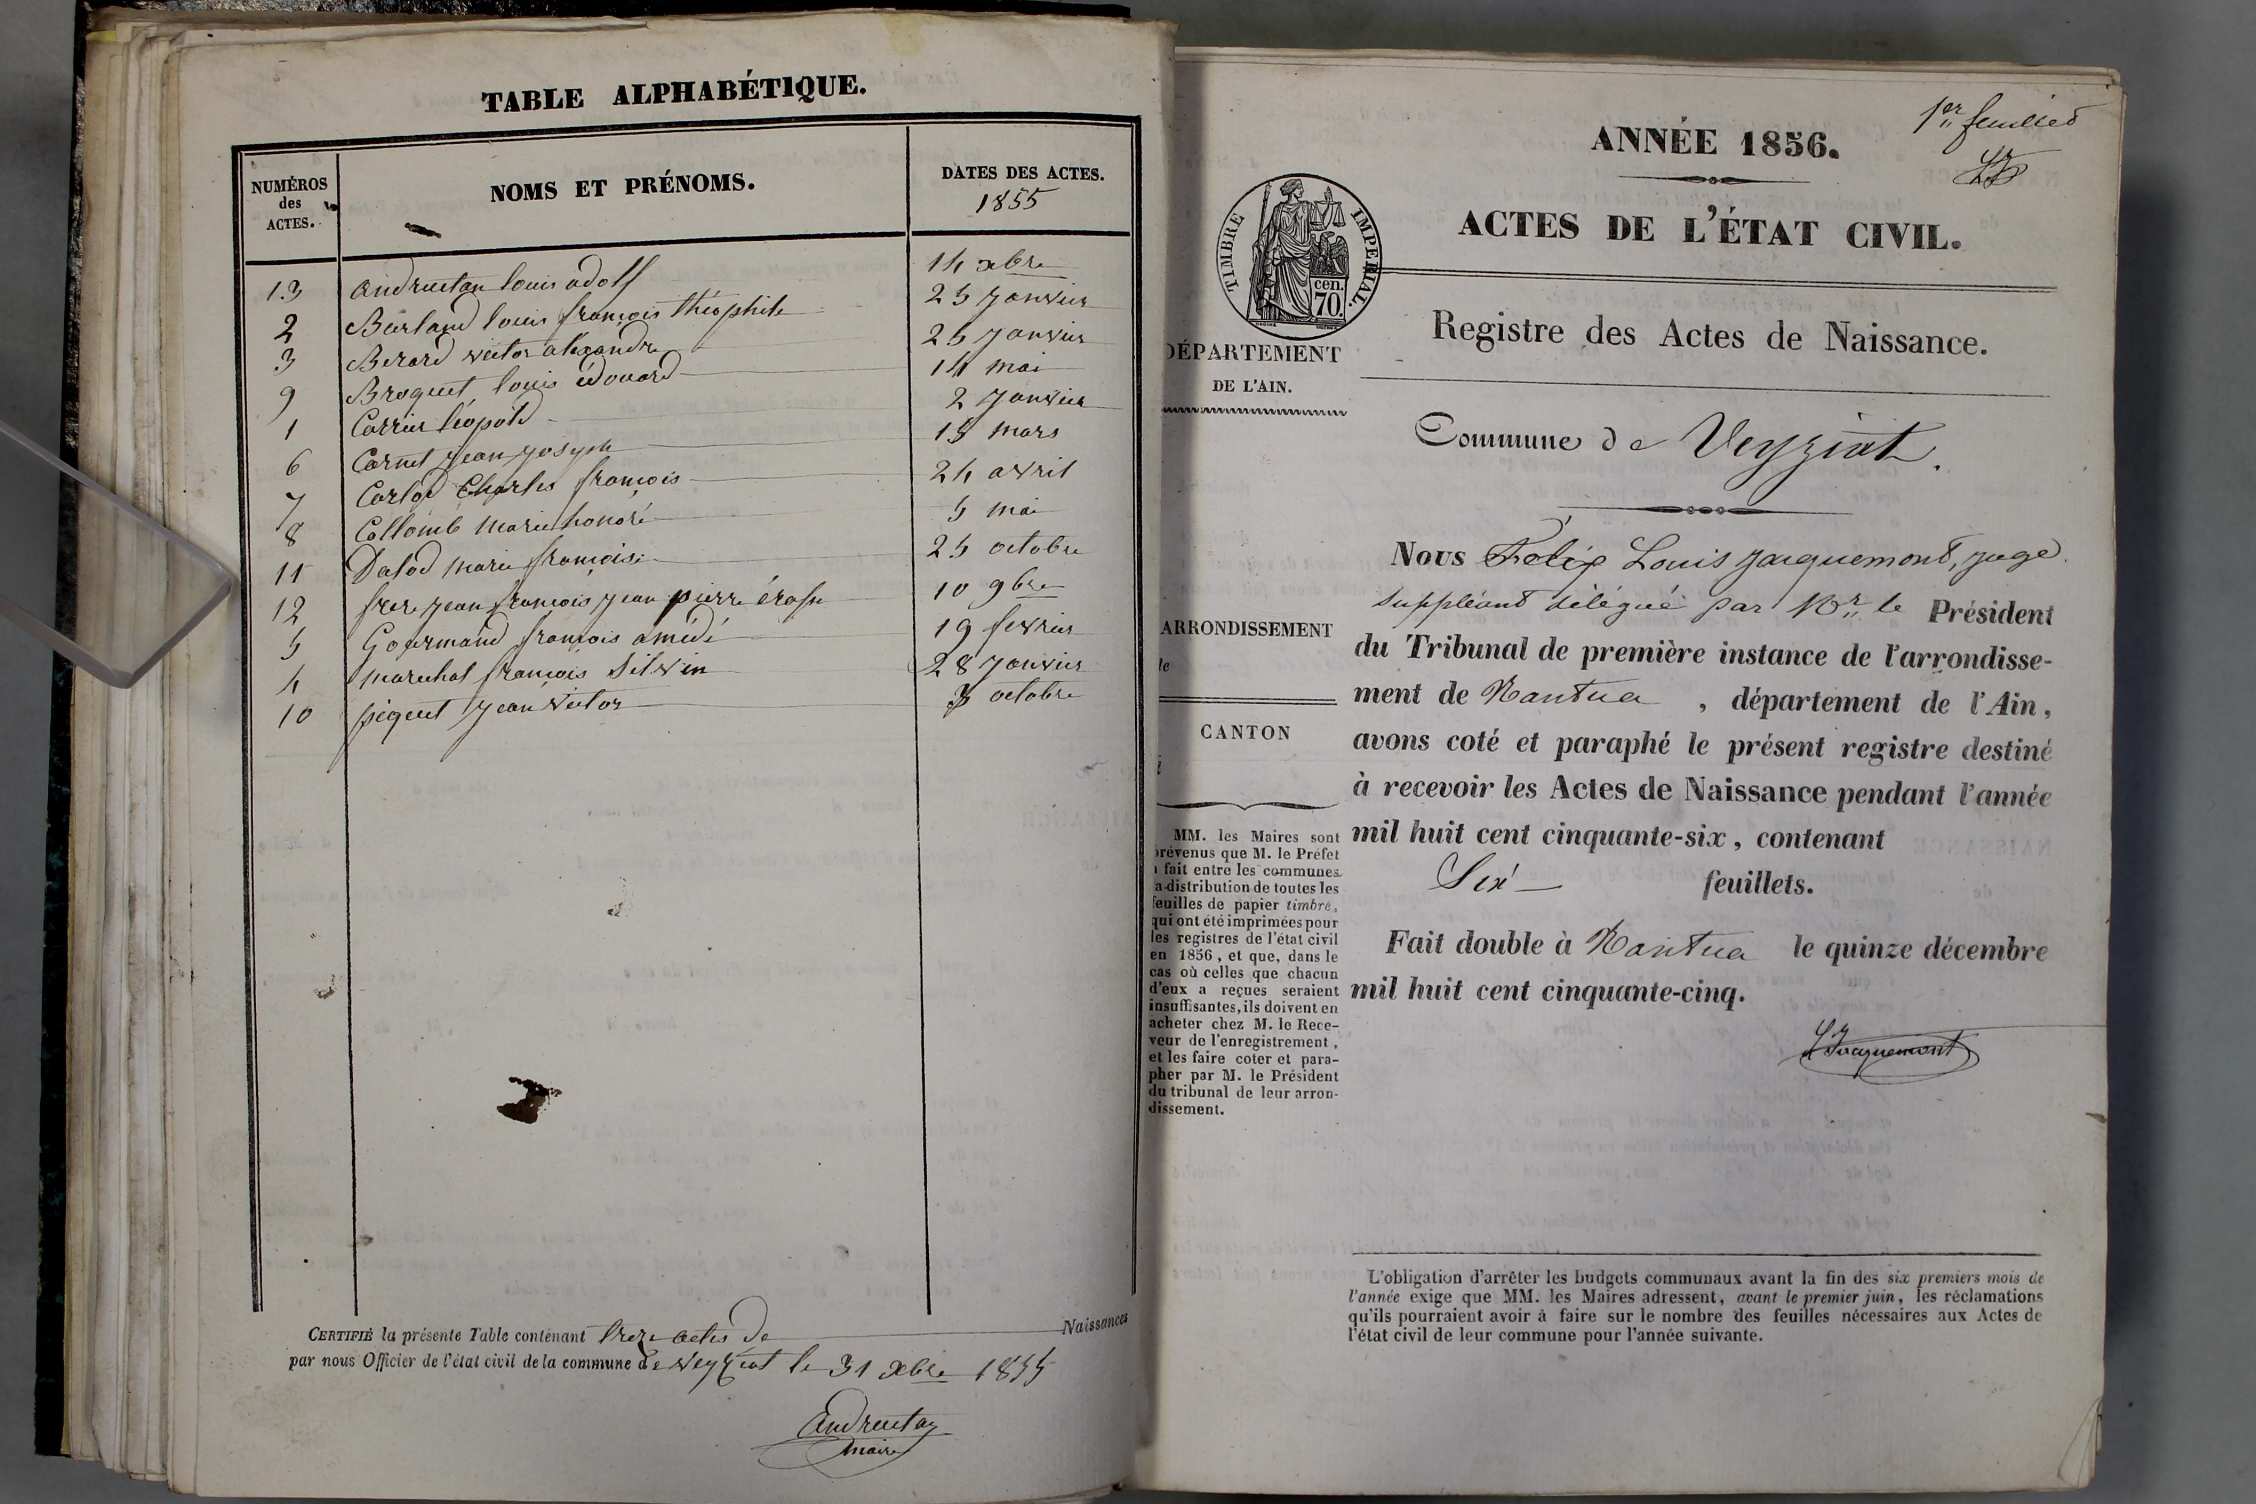 TABLE ALPHABÉTIQUE.
NUMÉROS des ACTES. NOMS ET PRÉNOMS. DATES DES ACTES.
1855
13 andruetan louis adolf 14 xbre
2 Barland louis françois théophile 25 janvier
3 Berard victor alexandre 25 janvier
9 Broquet louis édouard 14 mai
1 Carrier léopold 2 janvier
6 Carnet jean joseph 15 mars
7 Carlod Charles françois 24 avril
8 Collomb marie honoré 5 mai
11 Dalod marie françoise 25 octobre
12 frere jean françois jean pierre 10 9bre
5 Gourmand françois amédé 19 fevrier
4 marechal françois Silvin 28 janvier
10 piquet jean victor 3 octobre
CERTIFIÉ la présente Table contenant treze actes de Naissances
par nous Officier de l'état civil de la commune de veyziat le 31 xbre 1855
andruetan
maire
1er feuillet
ANNÉE 1856.
ACTES DE L'ÉTAT CIVIL.
TIMBRE IMPERIAL.
cen.
70.
Registre des Actes de Naissance.
DÉPARTEMENT
DE L'AIN.
Commune de Veyziat.
Nous Félix Louis Jacquemont, juge
suppléant délégué par Mr le Président
du Tribunal de première instance de l'arrondisse-
ment de Nantua , département de l'Ain,
avons coté et paraphé le présent registre destiné
à recevoir les Actes de Naissance pendant l'année
mil huit cent cinquante-six, contenant
Six feuillets.
Fait double à Nantua le quinze décembre
mil huit cent cinquante-cinq.
Jacquemont
ARRONDISSEMENT
de
CANTON
MM. les Maires sont
prévenus que M. le Préfet
a fait entre les communes
la distribution de toutes les
feuilles de papier timbré,
qui ont été imprimées pour
les registres de l'état civil
en 1856, et que, dans le
cas où celles que chacun
d'eux a reçues seraient
insuffisantes, ils doivent en
acheter chez M. le Rece-
veur de l'enregistrement,
et les faire coter et para-
pher par M. le Président
du tribunal de leur arron-
dissement.
L'obligation d'arrêter les budgets communaux avant la fin des six premiers mois de
l'année exige que MM. les Maires adressent, avant le premier juin, les réclamations
qu'ils pourraient avoir à faire sur le nombre des feuilles nécessaires aux Actes de
l'état civil de leur commune pour l'année suivante.